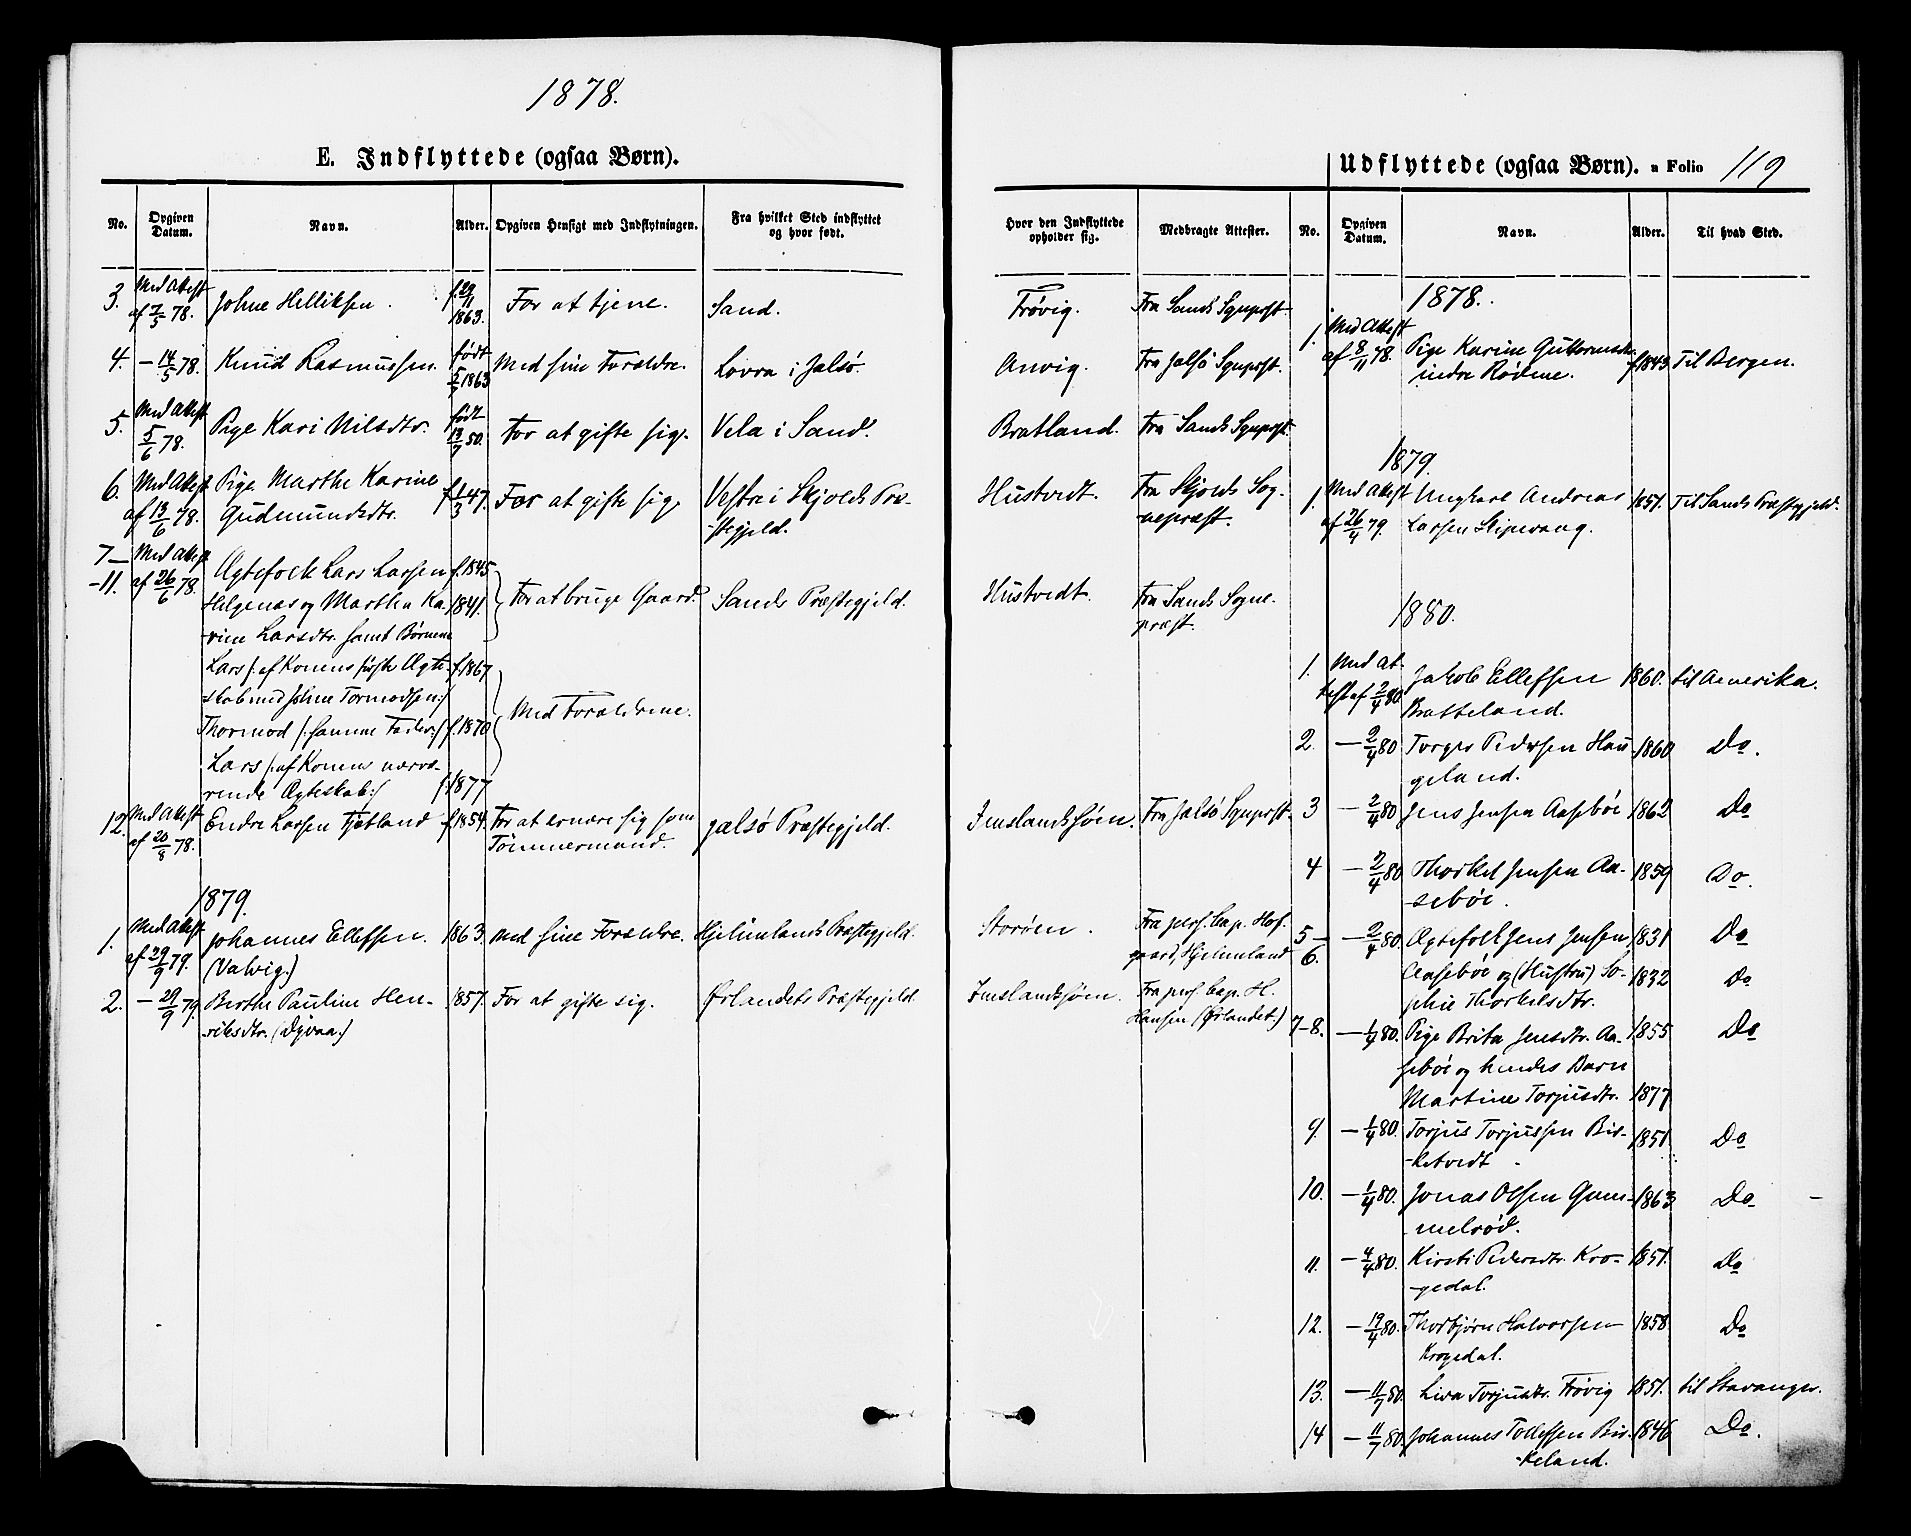 1878.
E. Indflyttede (ogsaa Børn).
No. Opgiven Datum. Navn. Alder. Opgiven Hensigt med Indflytningen. Fra hvilket Sted indflyttet og hvor født. Hvor den Indflyttede opholder sig. Medbragte Attester.
3. Med Attest af 7/5 78. Johne Helliksen. f. 29/11 1863. For at tjene. Sand. Frøvig. Fra Sands Sgnprst.
4. — 14/5 78. Knud Rasmussen. født 5/5 1863 Med sine Forældre. Lovra i Jalsø. Anvig. Fra Jalsø Sgnprst.
5. Med Attest 5/6 78. Pige Kari Nilsdtr. født 13/7 50. For at gifte sig. Vela i Sand. Bratland. Fra Sands Sgnprst.
6. Med Attest af 13/6 78. Pige Marthe Karine f. 1/3 47. For at gifte sig. Vestre i Skjolds Præ- Hustvedt. Fra Skjolds Sog-
Gudmundsdtr. -stegjeld. nepræst.
7— Med Attest Ægtefolk Lars Larsen f. 1845
-11. af 26/6 78. Helgenæs og Martha Ka- 1841. For at bruge Gaard. Sands Præstegjeld. Hustvedt. Fra Sands Sogne-
-rine Larsdtr. samt Børnene præst.
Lars /: af Konens første Ægte- f. 1867
-skab med Johne Tormodsen:/
Thormod /: samme Fader:/ f. 1870 Med Forældrene.
Lars /: af Konens nærvæ-
rende Ægteskab:/ f. 1877
12. Med Attest af 20/8 78. Endre Larsen Tjetland f. 1854. For at ernære sig som Jalsø Præstegjeld. Imslandssøen. Fra Jalsø Sgnprst.
Tømmermand.
1879.
1. Med Attest af 29/9 79. Johannes Ellefsen. 1863. Med sine Forældre. Hjelmelands Præstegjeld. Storøen. Fra pers. Cap. Hof-
(Valvig.) gaard, Hjelmeland
2. — 29/9 79. Berthe Pauline Hen- 1857. For at gifte sig. Ørlandets Præstegjeld. Imslandssøen. Fra pers. Cap. H.
-riksdtr. (Dyvaa.) Hansen (Ørlandet.)
Udflyttede (ogsaa Børn). a Folio 119
No. Opgiven Datum. Navn. Alder. Til hvad Sted.
1878.
1. Med Attest af 8/11 78. Pige Karine Guttormsdtr. f. 1843. Til Bergen.
indre Rødne.
1879.
1. Med Attest Ungkarl Andreas 1851. Til Sands Præstegjeld.
af 26/4 79. Larsen Skipevaag.
1880.
1. Med At- Jakob Ellefsen 1860. til Amerika.
test af 2/4 80. Bratteland.
2. — 2/4 80 Torger Pedersen Hau- 1860 Do.
geland.
3 — 2/4 80 Jens Jensen Aasebøe 1862 Do
4 — 2/4 80 Thorkel Jensen Aa- 1859 Do.
-sebøe.
5— — 2/4 80. Ægtefolk Jens Jensen 1831 Do
6. Aasebøe og (Hustru) So- 1832 Do
phie Thorkelsdtr.
7-8. — 1/4 80. Pige Brita Jensdtr. Aa- 1855 Do
sebøe og hendes Barn
Martine Torjusdtr. 1877
9. — 1/4 80. Torjus Torjussen Bir- 1851. Do
-ketvedt
10. — 1/4 80. Jonas Olsen Gam- 1863 Do
melrød.
11. — 4/4 80. Kirsti Pedersdtr. Kro- 1851. Do
-gedal.
12. — 19/4 80. Thorbjørn Halvorsen 1858 Do
Krogedal.
13. — 11/7 80. Liva Torjusdtr. Frøvig 1851. til Stavanger.
14 — 11/7 80. Johannes Tollefsen Bir- 1846 Do.
-keland.